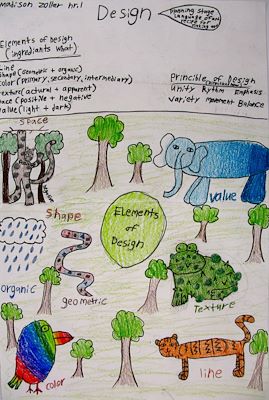 Madison Zoller hr.1
Design
Planning stage
Language of art
Elements of Design
(ingrediants what)
Line
Shape (Geometric + organic)
Color (Primary, secondary, intermediary)
Texture (actural + apparent)
Space (positive + negative
Value (light + dark)
Principle of Design
Unity Rythm Emphasis
variety Movement Balance
space
value
shape
Elements
of
Design
organic
geometric
Texture
color
line